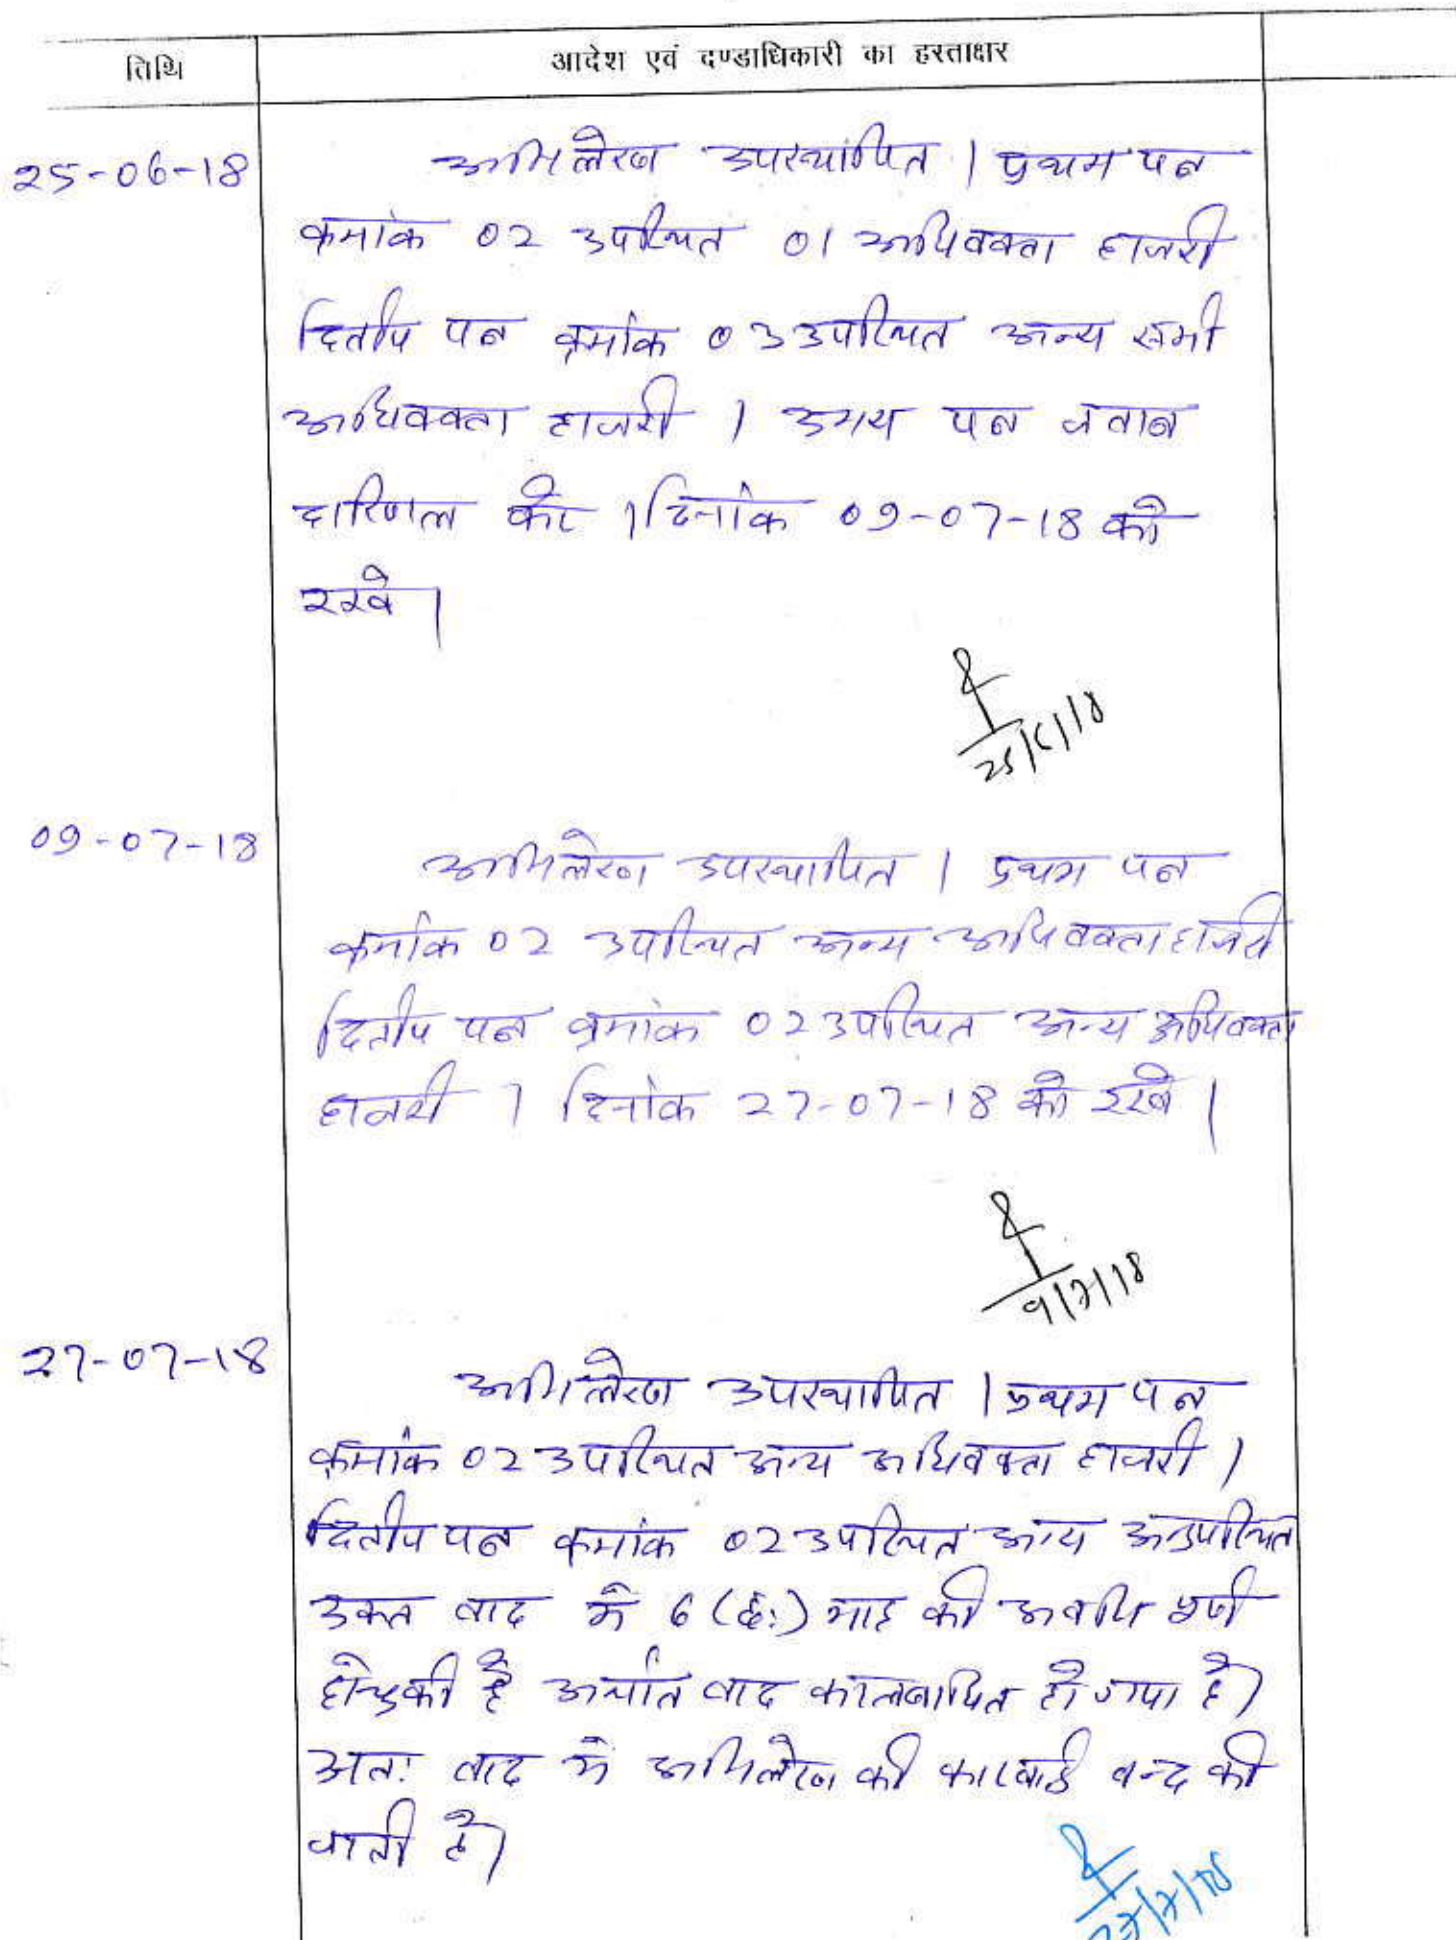 तिथि
आदेश एवं दण्डाधिकारी का हस्ताक्षर
25-06-18
अभिलेख उपस्थापित । प्रथम पक्ष
क्रमांक 02 उपस्थित 01 अधिवक्ता हाजरी
द्वितीय पक्ष क्रमांक 03 उपस्थित अन्य सभी
अधिवक्ता हाजरी । उभय पक्ष जवाब
दाखिल करें । दिनांक 09-07-18 को
रखें ।
25/6/18
09-07-18
अभिलेख उपस्थापित । प्रथम पक्ष
क्रमांक 02 उपस्थित अन्य अधिवक्ता हाजरी
द्वितीय पक्ष क्रमांक 02 उपस्थित अन्य अधिवक्ता
हाजरी । दिनांक 27-07-18 को रखें ।
9/7/18
27-07-18
अभिलेख उपस्थापित । प्रथम पक्ष
क्रमांक 02 उपस्थित अन्य अधिवक्ता हाजरी ।
द्वितीय पक्ष क्रमांक 02 उपस्थित अन्य अनुपस्थित
उक्त वाद में 6 (छः) माह की अवधि पूर्ण
हो चुकी है अर्थात वाद कालबाधित हो गया है ।
अतः वाद में अभिलेख की कारवाई बन्द की
जाती है ।
27/7/18